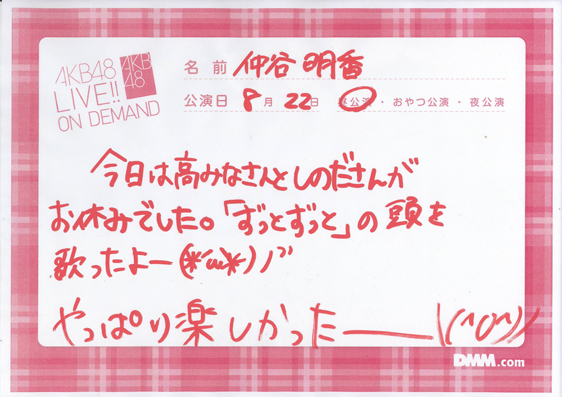 AKB48
LIVE!!
ON DEMAND
AKB
48
名前 仲谷明香
公演日 8月22日 昼公演・おやつ公演・夜公演
今日は高みなさんとしのださんが
お休みでした。「ずっとずっと」の頭を
歌ったよー(*´ω`*)ノ"
やっぱり楽しかったーーー\(^o^)/
DMM.com